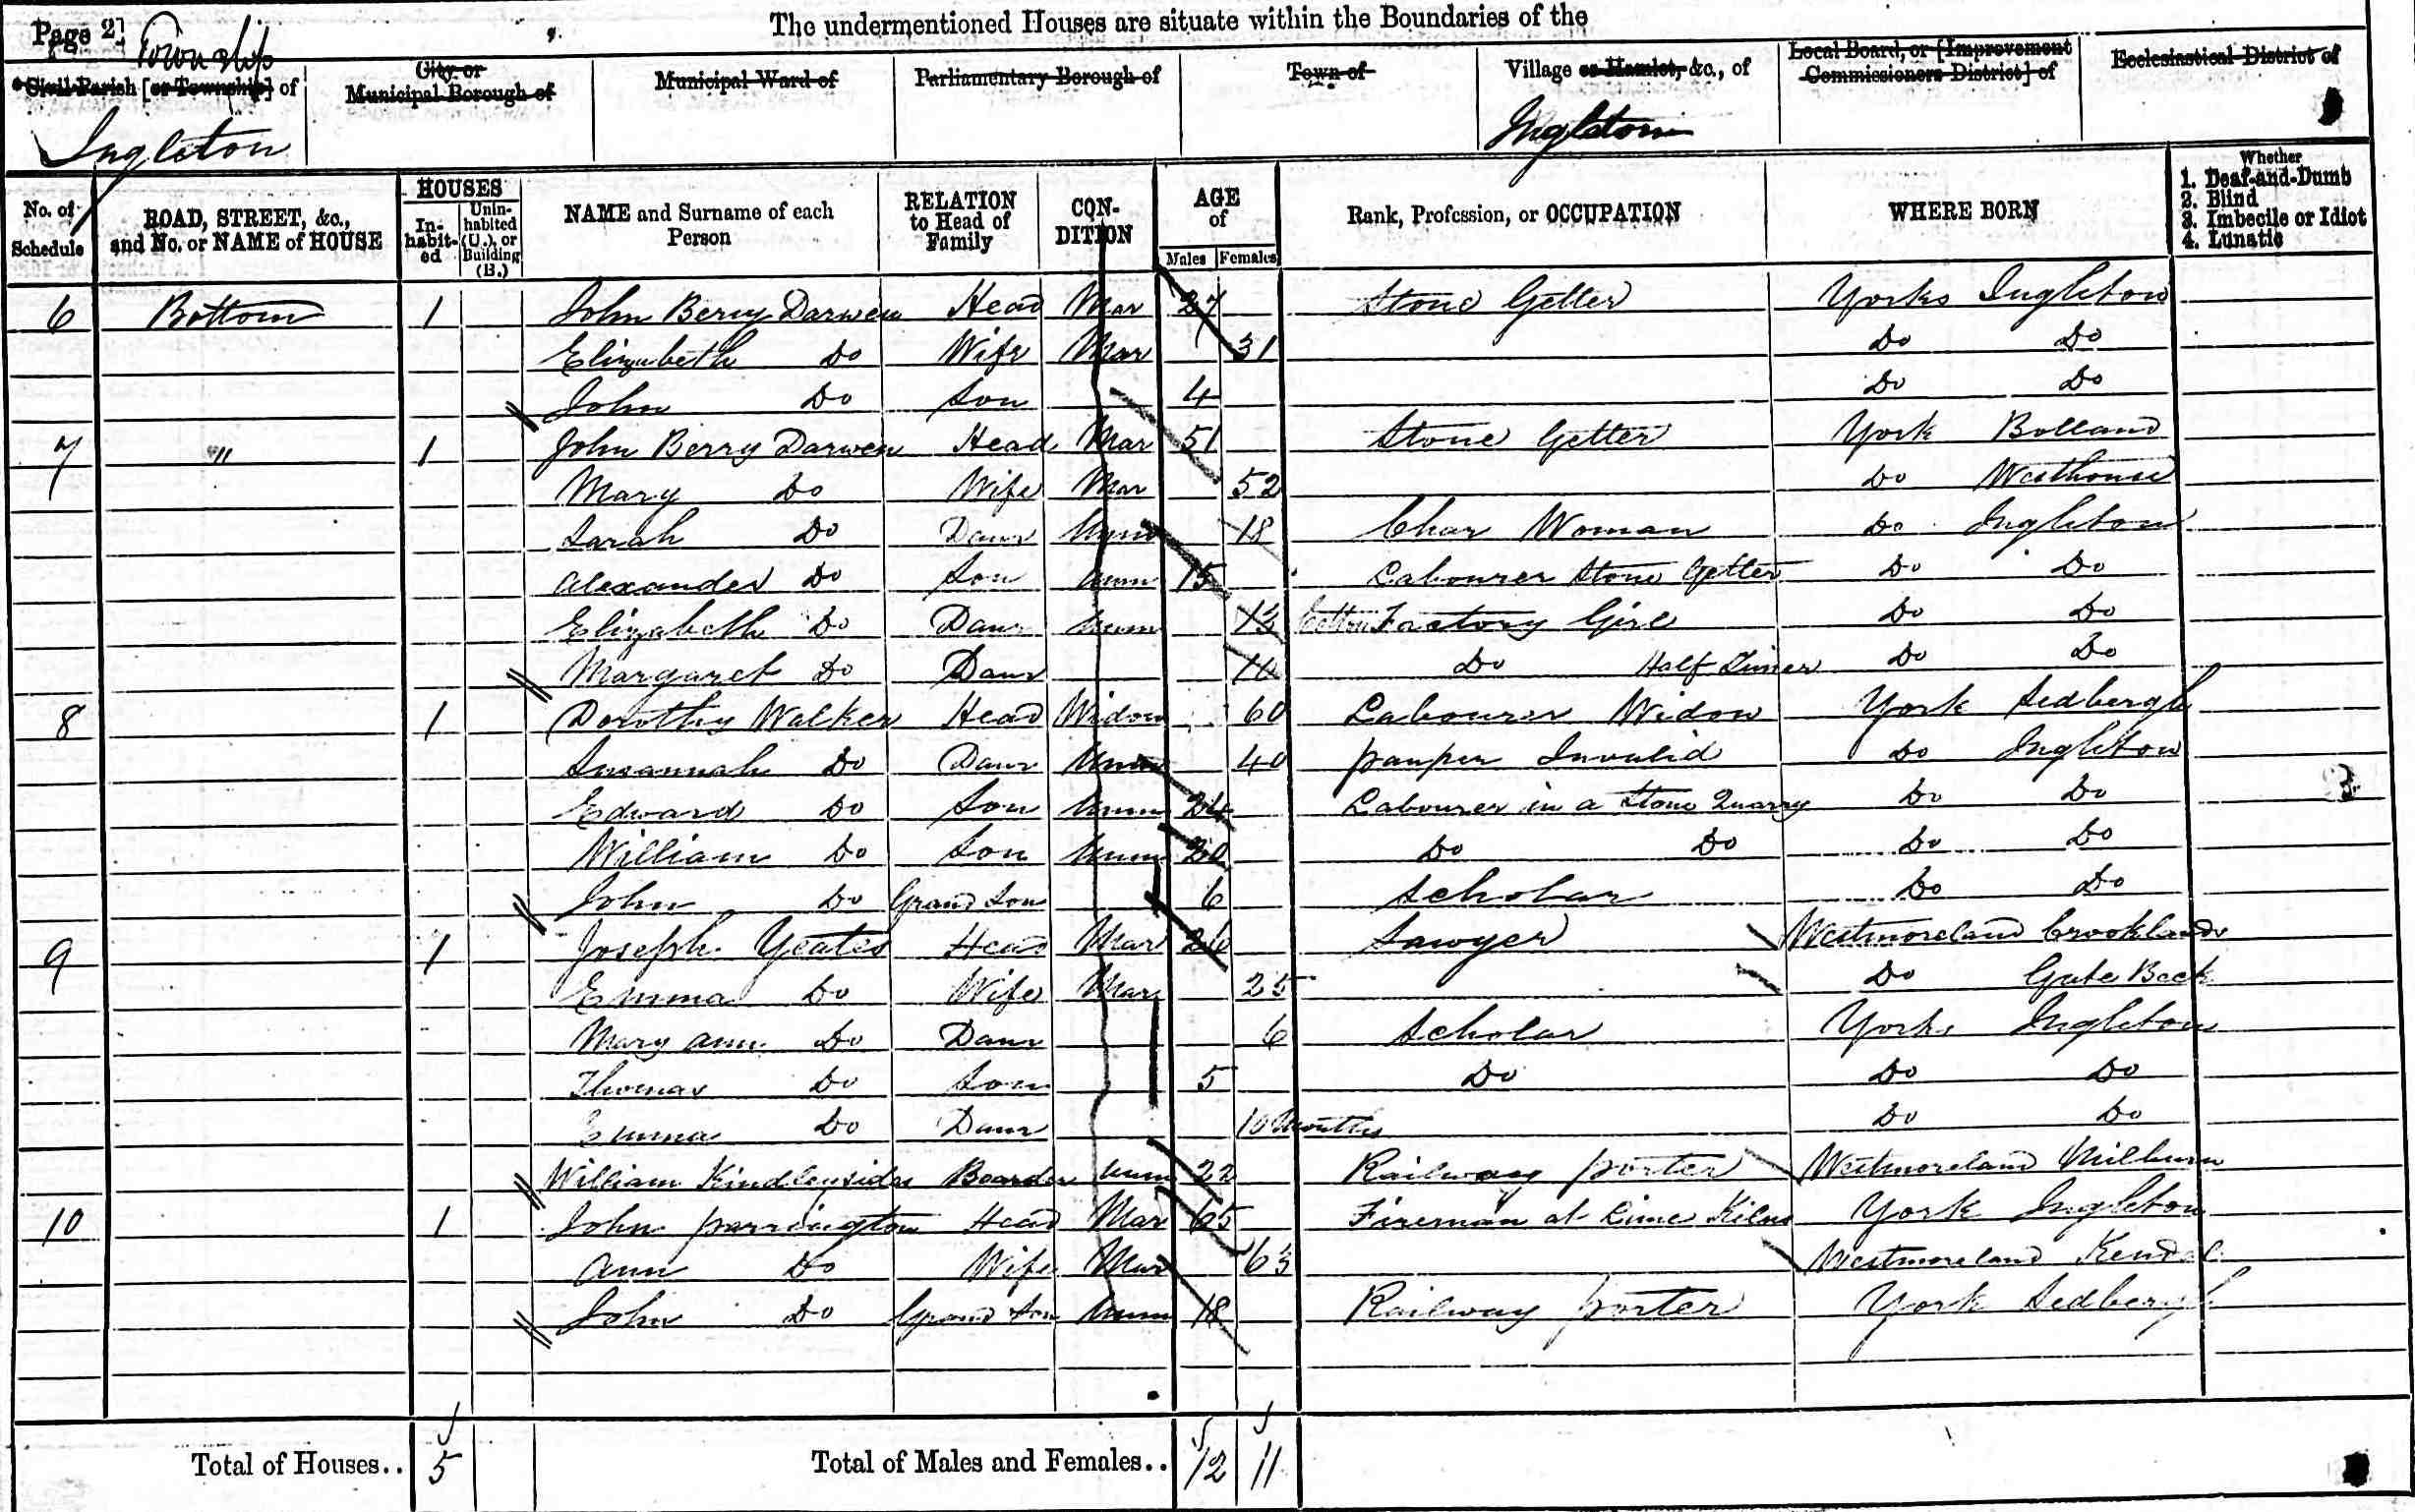 Page 2]
The undermentioned Houses are situate within the Boundaries of the
Township
Civil Parish [or Township] of
City or Municipal Borough of
Municipal Ward of
Parliamentary Borough of
Town of
Village or Hamlet, &c., of
Local Board, or [Improvement Commissioners District] of
Ecclesiastical District of
Ingleton
Ingleton
No. of Schedule
ROAD, STREET, &c., and No. or NAME of HOUSE
HOUSES
In-habit-ed
Unin-habited (U.), or Building (B.)
NAME and Surname of each Person
RELATION to Head of Family
CON-DITION
AGE of
Males
Females
Rank, Profession, or OCCUPATION
WHERE BORN
Whether
1. Deaf-and-Dumb
2. Blind
3. Imbecile or Idiot
4. Lunatic
6 Bottom 1 John Berry Darwen Head Mar 27 Stone Getter Yorks Ingleton
Elizabeth Do Wife Mar 31 Do Do
John Do Son 4 Do Do
7 " 1 John Berry Darwen Head Mar 51 Stone Getter York Bolland
Mary Do Wife Mar 52 Do Westhouse
Sarah Do Daur Unm 18 Char Woman Do Ingleton
Alexander Do Son Unm 15 Labourer Stone Getter Do Do
Elizabeth Do Daur Unm 13 Cotton Factory Girl Do Do
Margaret Do Daur Do Half Timer Do Do
8 1 Dorothy Walker Head Widow 60 Labourer Widow York Sedbergh
Susannah Do Daur Unm 40 pauper Invalid Do Ingleton
Edward Do Son Unm 24 Labourer in a Stone Quarry Do Do 3
William Do Son Unm 20 Do Do Do Do
John Do Grand Son 6 Scholar Do Do
9 1 Joseph Yeates Head Mar 26 Sawyer Westmoreland Crooklands
Emma Do Wife Mar 25 Do Gate Beck
Mary Ann Do Daur 6 Scholar Yorks Ingleton
Thomas Do Son 5 Do Do Do
Emma Do Daur 10 Months Do Do
William Kindleysides Boarder Unm 22 Railway porter Westmoreland Milburn
10 1 John parrington Head Mar 65 Fireman at Lime Kilns York Ingleton
Ann Do Wife Mar 63 Westmoreland Kendal
John Do Grand Son Unm 18 Railway porter York Sedbergh
Total of Houses.. 5
Total of Males and Females.. 12 11